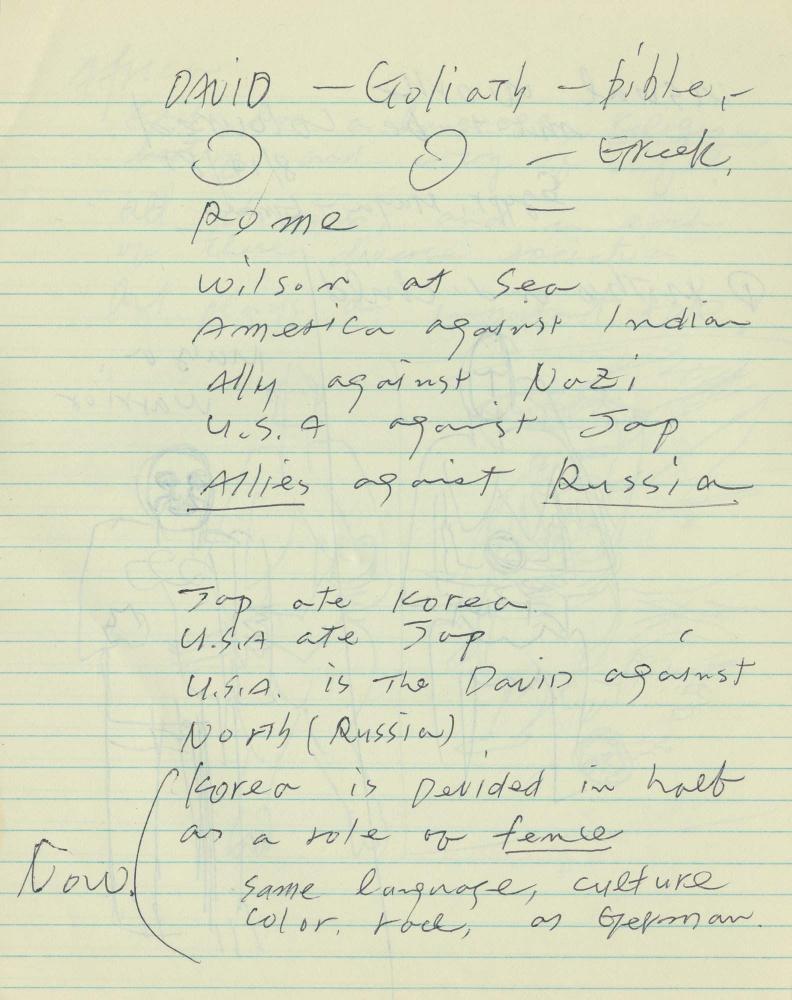 DAVID – Goliath – bible, –
– Greek,
Rome –
Wilson at Sea
America against Indian
Ally against Nazi
U.S.A against Jap
Allies against Russia
Jap ate Korea
U.S.A ate Jap
U.S.A. is The DaviD against
North (Russia)
Korea is Devided in half
as a role of fence
Now.
same language, culture
color. race, as German.